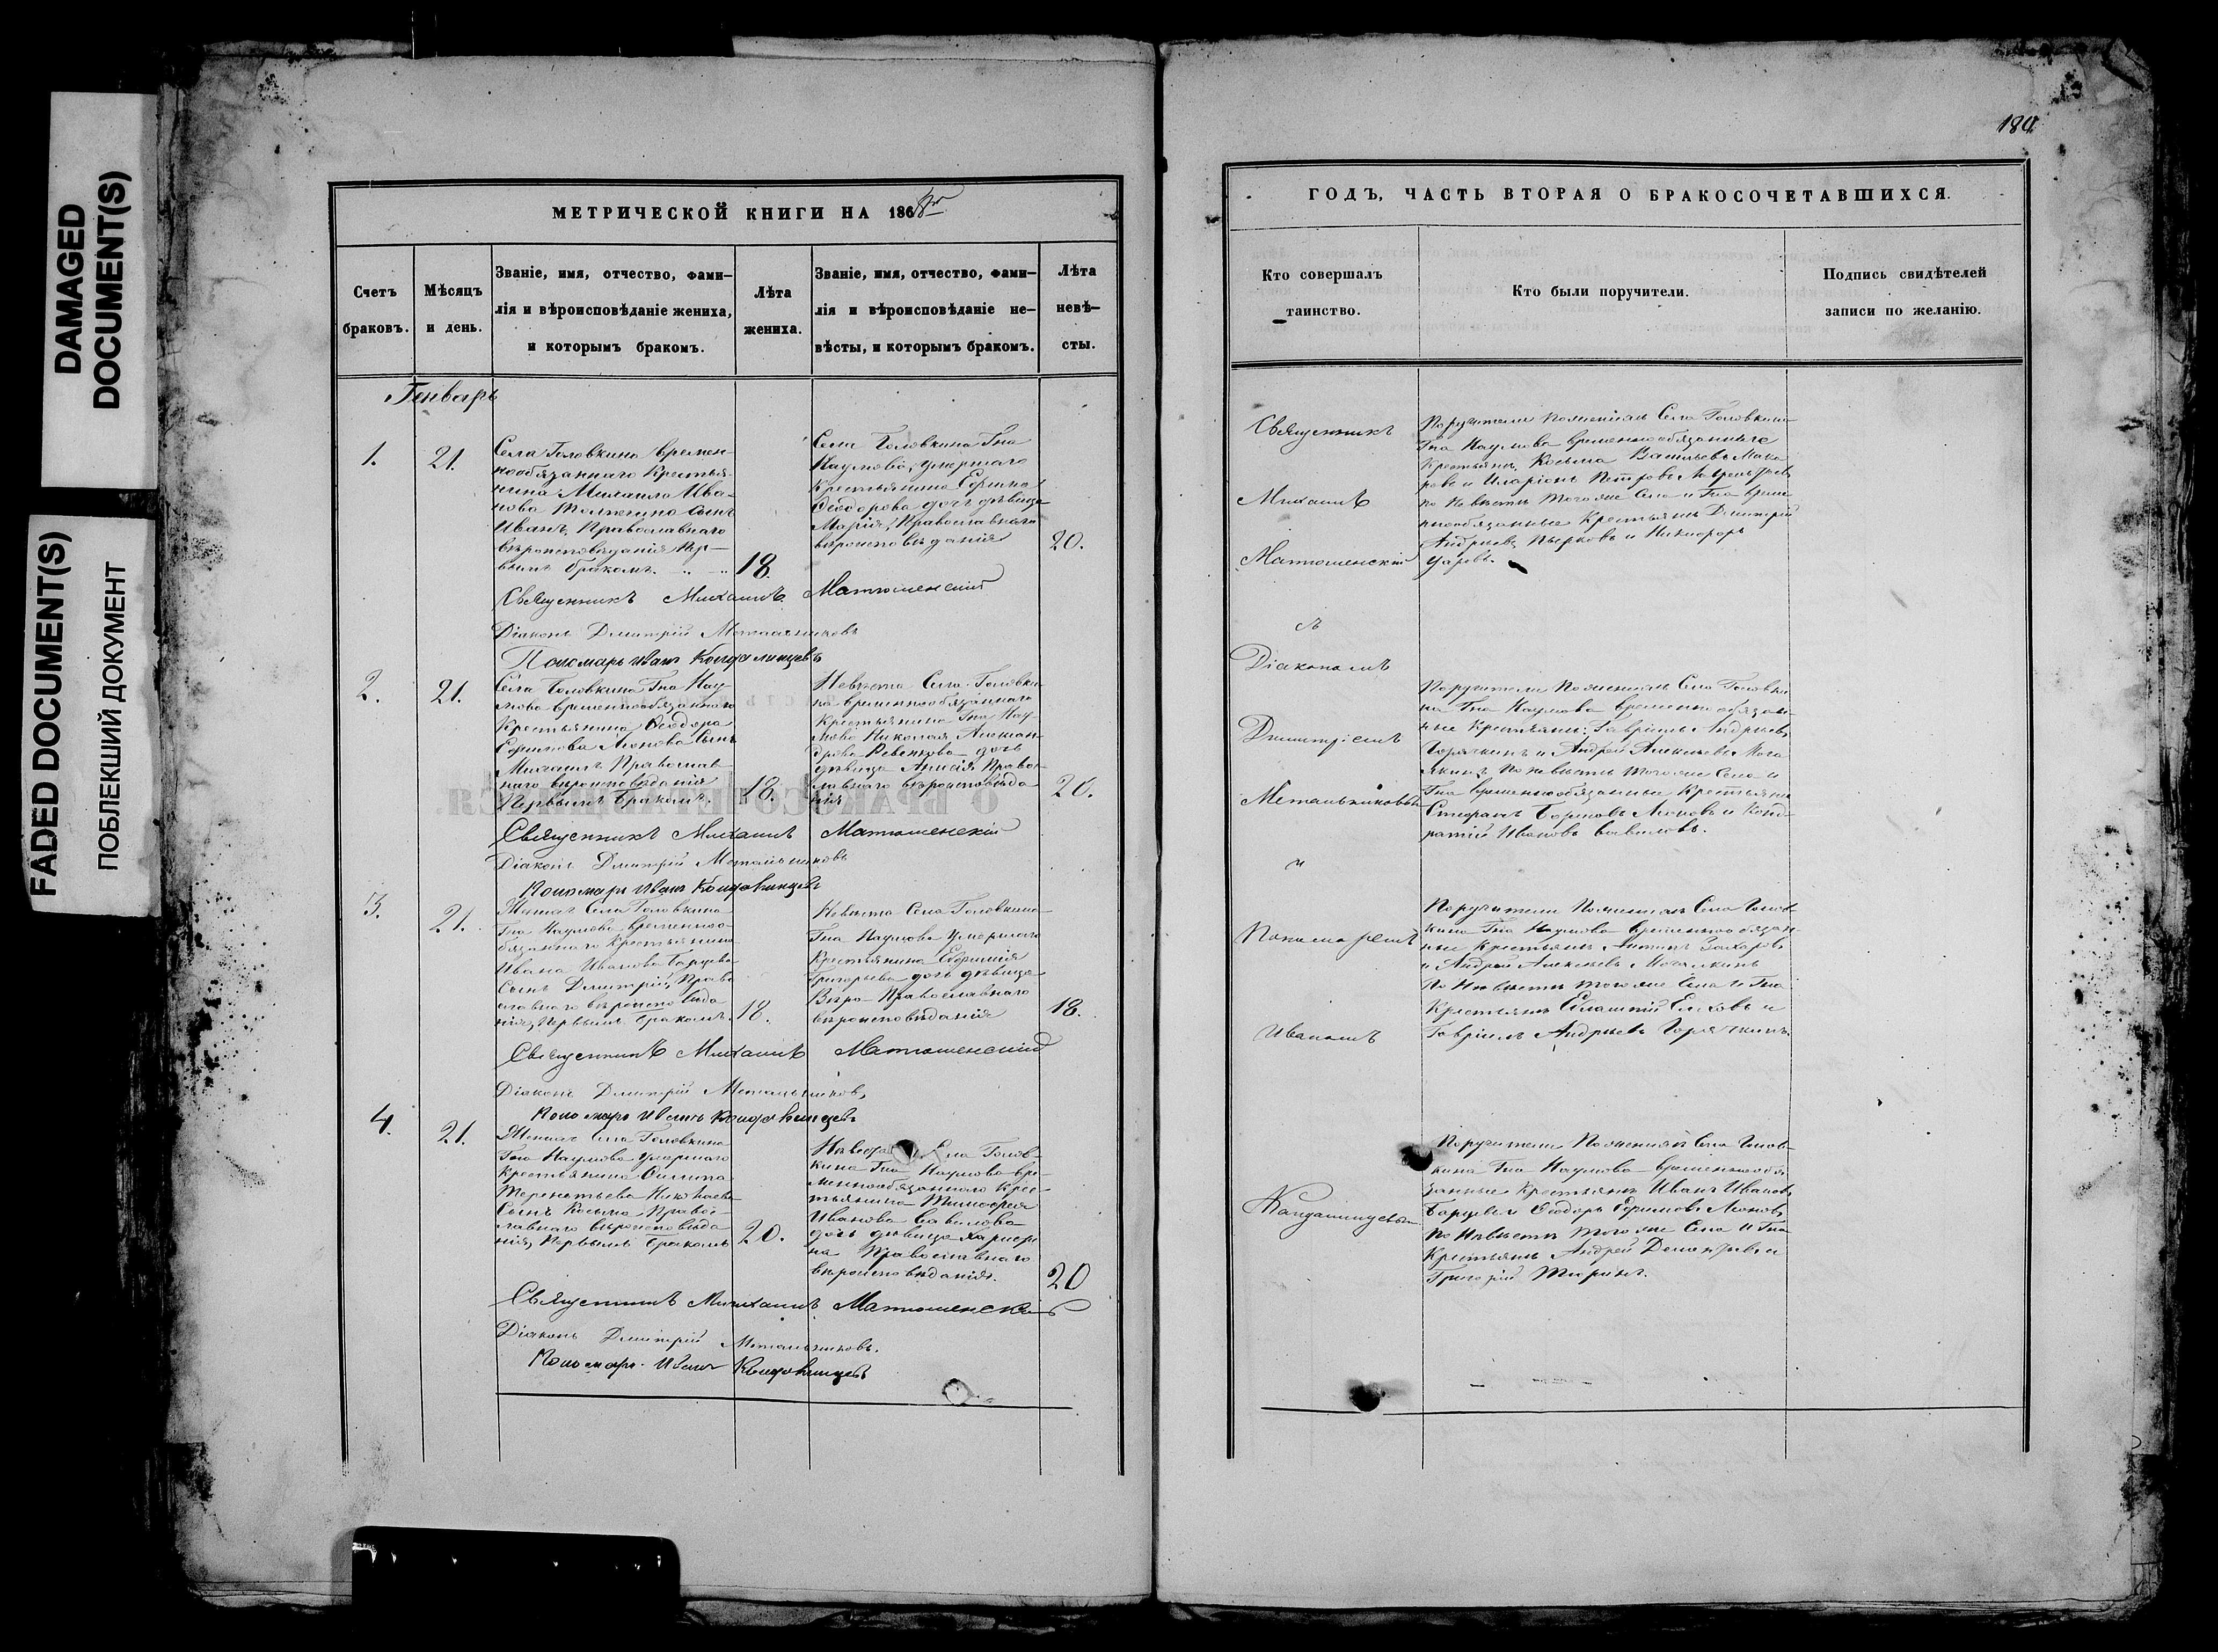 DAMAGED
DOCUMENT(S)
FADED DOCUMENT(S)
ПОБЛЕКШИЙ ДОКУМЕНТ
МЕТРИЧЕСКОЙ КНИГИ НА 1868
Счетъ
браковъ.
Мѣсяцъ
и день.
Званіе, имя, отчество, фами-
лія и вѣроисповѣданіе жениха,
и которымъ бракомъ.
Лѣта
жениха.
Званіе, имя, отчество, фами-
лія и вѣроисповѣданіе не-
вѣсты, и которымъ бракомъ.
Лѣта
невѣ-
сты.
Генварь
1.
21.
Села Головкина времен-
нообязаннаго Крестья-
нина Михаила Ива-
нова сынъ
Иванъ, Православнаго
вѣроисповѣданія Пер-
вымъ бракомъ.
18.
Села Головкина Гна
Наумова, умершаго
Крестьянина Ефима
Ѳеодорова дочь дѣвица
Марія, Православнаго
вѣроисповѣданія
20.
Священникъ Михаилъ Матюшенскій
Діаконъ Дмитрій Метальниковъ
Пономарь Иванъ
2.
21.
Села Головкина Гна Нау-
мова временнообязаннаго
Крестьянина Ѳеодора
Ефимова Леонова Сынъ
Михаилъ Православ-
наго вѣроисповѣданія
Первымъ Бракомъ.
18.
Невѣста Села Головки-
на временнообязаннаго
Крестьянина Гна Нау-
мова Николая Алексан-
дрова дочь
дѣвица Анисія Право-
славнаго вѣроисповѣда
нія
20.
Священникъ Михаилъ Матюшенскій
Діаконъ Дмитрій Метальниковъ
Пономарь Иванъ
3.
21.
Женихъ Села Головкина
Гна Наумова временно-
обязаннаго Крестьянина
Ивана Иванова Барцева
Сынъ Дмитрій, Право
славнаго вѣроисповѣда
нія, Первымъ Бракомъ.
18.
Невѣста Села Головкина
Гна Наумова умершаго
Крестьянина
Григорьева дочь дѣвица
Вѣра Православнаго
вѣроисповѣданія
18.
Священникъ Михаилъ Матюшенскій
Діаконъ Дмитрій Метальниковъ
Пономарь Иванъ
4.
21.
Женихъ Села Головкина
Гна Наумова умершаго
Крестьянина Филипа
Терентьева
Сынъ Косьма Право-
славнаго вѣроисповѣда
нія, Первымъ Бракомъ
20.
Невѣста Села Голов-
кина Гна Наумова вре-
меннообязаннаго Крес-
тьянина Тимофея
Иванова Вавилова
дочь дѣвица
на Православнаго
вѣроисповѣданія.
20
Священникъ Михаилъ Матюшенскій
Діаконъ Дмитрій Метальниковъ.
Пономарь Иванъ
180
ГОДЪ, ЧАСТЬ ВТОРАЯ О БРАКОСОЧЕТАВШИХСЯ.
Кто совершалъ
таинство.
Кто были поручители.
Подпись свидѣтелей
записи по желанію.
Священникъ
Михаилъ
Матюшенскій
съ
Діакономъ
Дмитріемъ
Метальниковымъ
и
Пономаремъ
Иваномъ
Поручители По женихѣ Села Головкина
Гна Наумова временнообязанные
Крестьяне, Косьма Васильевъ
и Иларіонъ Петровъ
по Невѣстѣ того же Села и Гна време
ннообязанные Крестьяне Дмитрій
Андреевъ и Никифоръ
Поручители По женихѣ Села Головки
на Гна Наумова временнообязан-
ные Крестьяне: Гавріилъ Андреевъ
Горячкинъ и Андрей Алексѣевъ
По невѣстѣ того же Села и
Гна временнообязанные Крестьяне
Стефанъ Борисовъ Леоновъ и Конд-
ратій Ивановъ Вавиловъ.
Поручители По женихѣ Села Голов-
кина Гна Наумова временнообязан-
ные Крестьяне Захаровъ
и Андрей Алексѣевъ
По Невѣстѣ того же Села и Гна
Крестьяне и
Гавріилъ Андреевъ Горячкинъ.
Поручители По женихѣ Села Голов-
кина Гна Наумова временнообя
занные Крестьяне Иванъ Ивановъ
Барцевъ и Ѳеодоръ Ефимовъ Леоновъ
По Невѣстѣ того же Села и Гна
Крестьяне Андрей и
Григорій